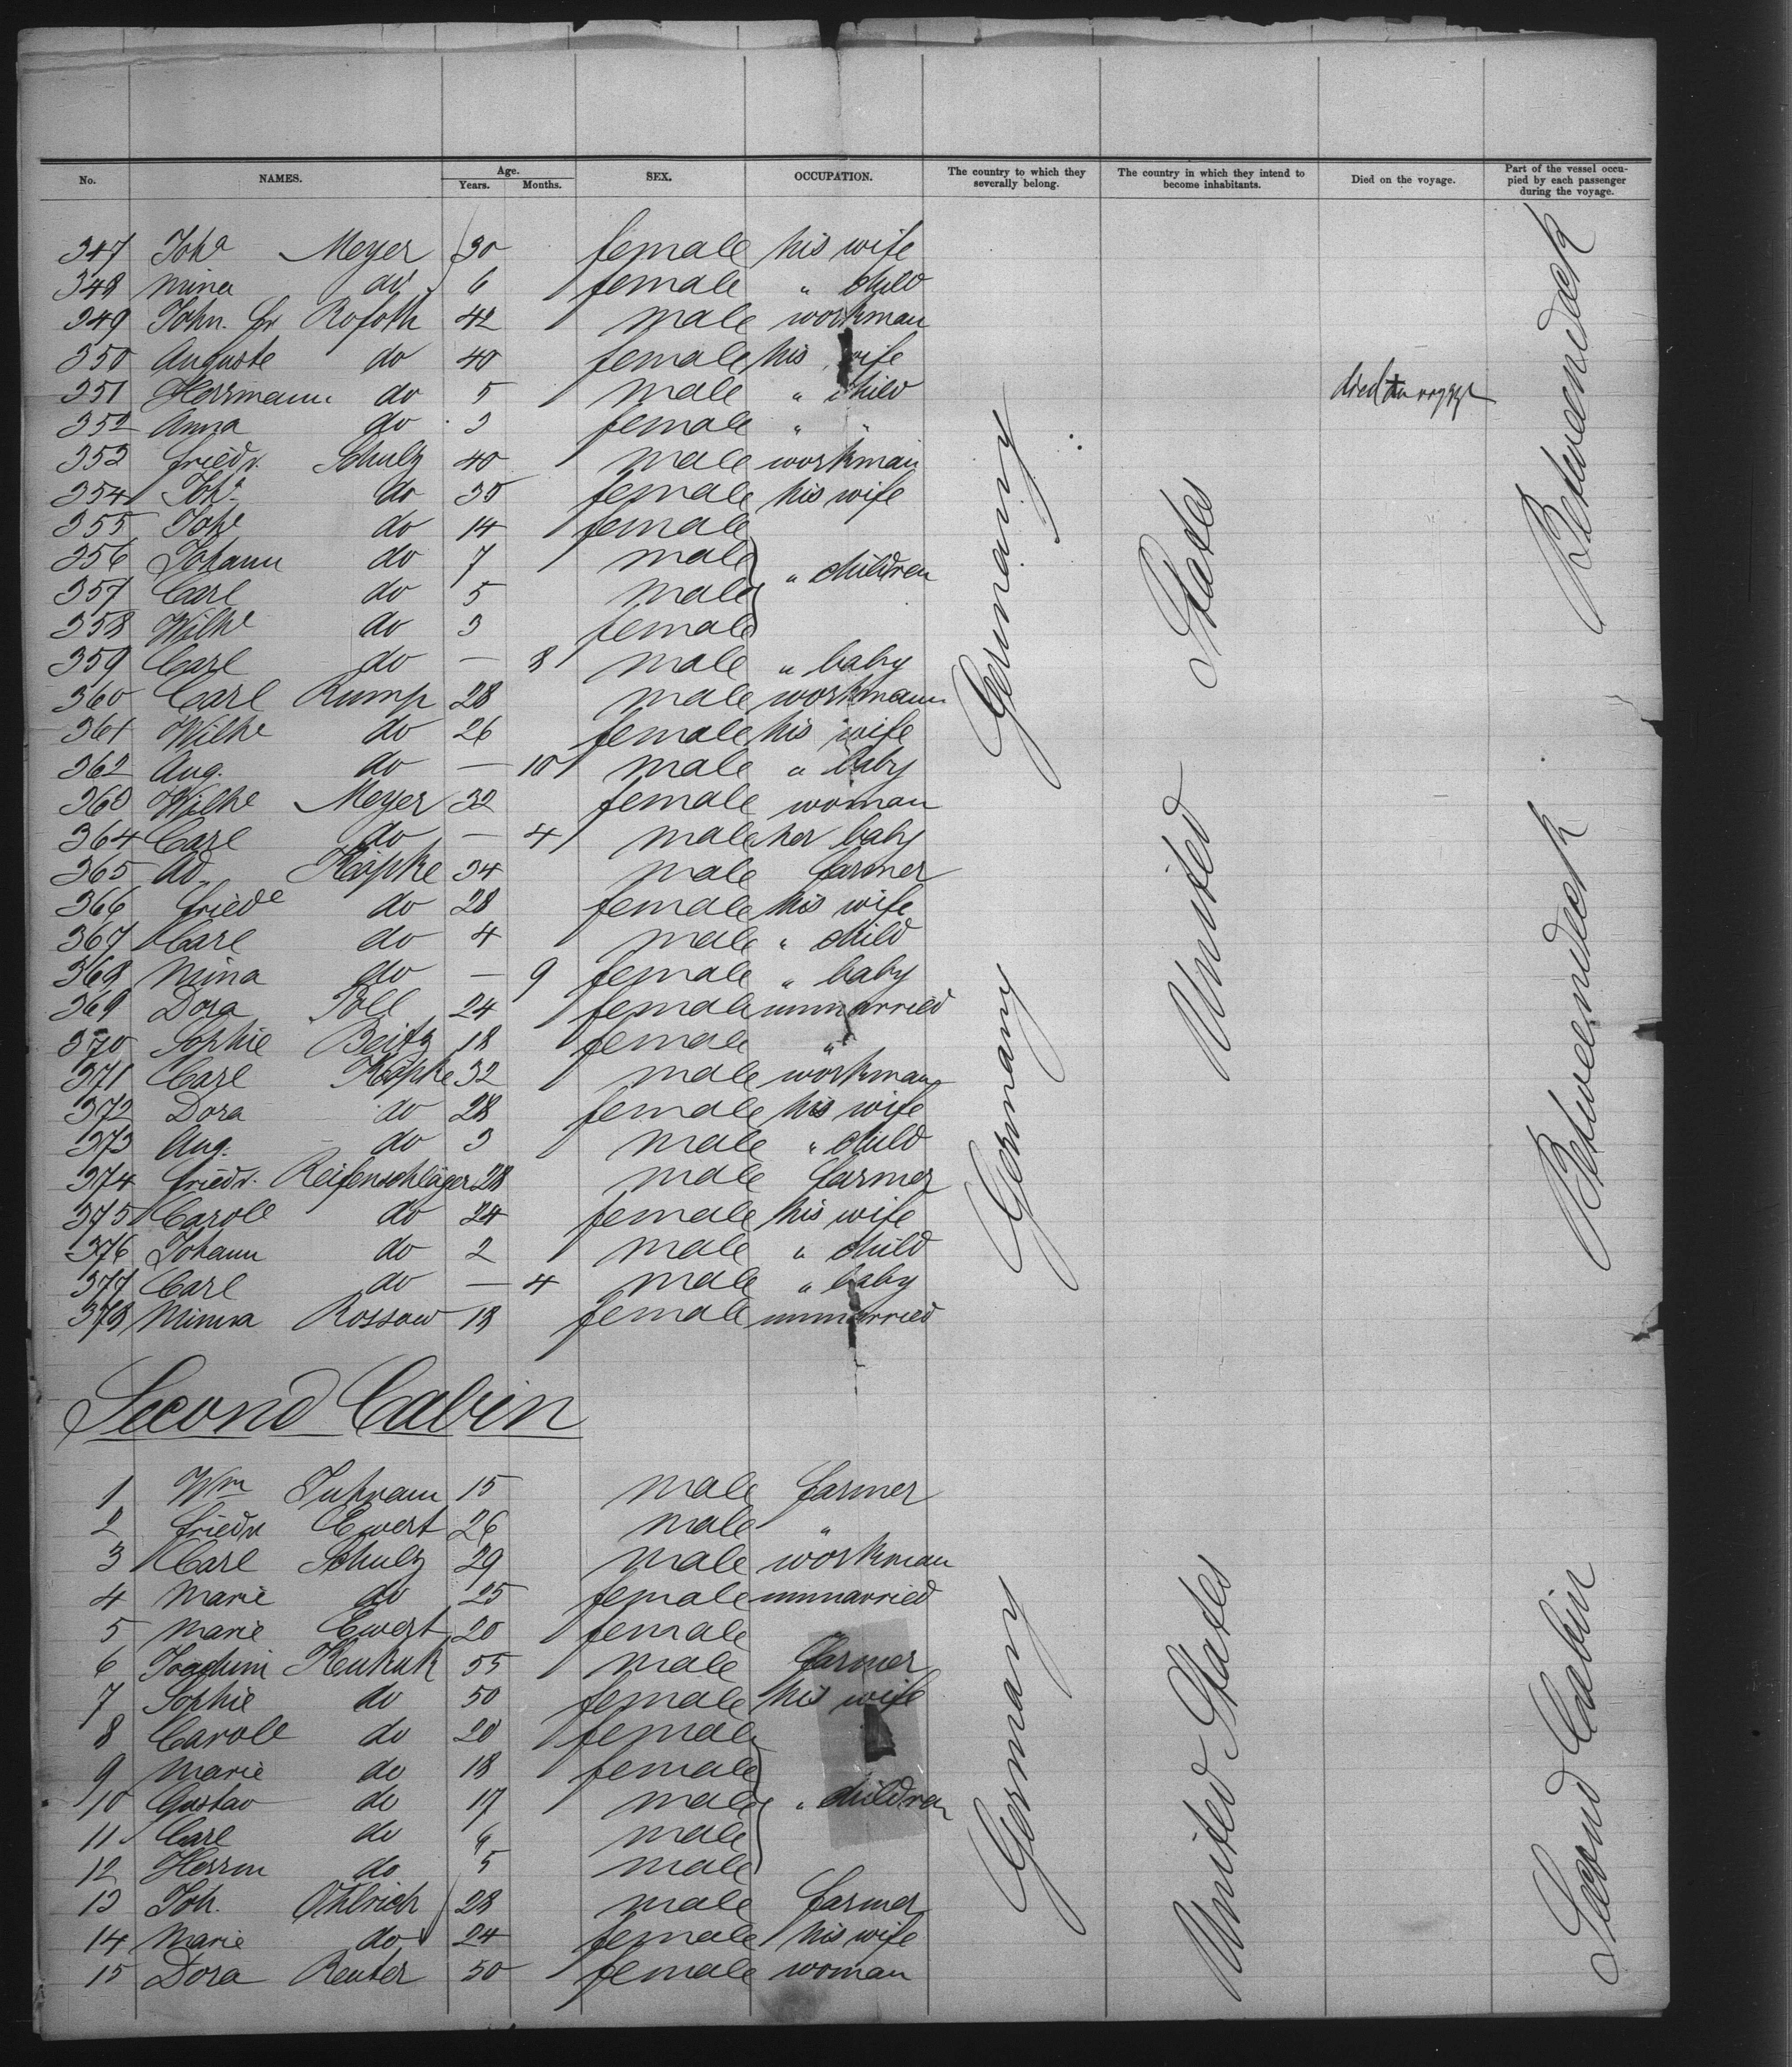 No. NAMES. Age. Years. Months. SEX. OCCUPATION. The country to which they severally belong. The country in which they intend to become inhabitants. Died on the voyage. Part of the vessel occupied by each passenger during the voyage.
347 Joha Meyer 30 female his wife
348 Mina do 6 female " child
349 John. Fr Rofoth 42 male workman
350 Auguste do 40 female his wife
351 Herrmann do 5 male " child died
352 Anna do 3 female " "
353 Friedr. Schulz 40 male workman
354 Joha do 30 female his wife
355 Joh do 14 female
356 Johann do 7 male " children
357 Carl do 5 male
358 Wilhe do 3 female
359 Carl do — 8 male " baby
360 Carl Rump 28 male workmann
361 Wilhe do 26 female his wife
362 Aug. do — 10 male " baby
363 Wilhe Meyer 32 female woman
364 Carl do — 4 male her baby
365 Ad. Köpke 34 male farmer
366 Friede do 28 female his wife
367 Carl do 4 male " child
368 Mina do — 9 female " baby
369 Dora Poll 24 female unmarried
370 Sophie Beitz 18 female "
371 Carl Köpke 32 male workman
372 Dora do 28 female his wife
373 Aug. do 3 male " child
374 Friedr. Reifenschläger 28 male farmer
375 Carole do 24 female his wife
376 Johann do 2 male " child
377 Carl do — 4 male " baby
378 Minna Rossow 18 female unmarried
Germany
Germany
United States
Betweendeck
Betweendeck
Second Cabin
1 Wm 15 male farmer
2 Friedr Ewert 26 male "
3 Carl Schulz 29 male workman
4 Marie do 25 female unmarried
5 Marie Ewert 20 female
6 Joachim Kukuk 55 male farmer
7 Sophie do 50 female his wife
8 Carole do 20 female
9 Marie do 18 female
10 Gustav do 17 male " children
11 Carl do 6 male
12 Herrm do 5 male
13 Joh. Ohlrich 28 male farmer
14 Marie do 24 female his wife
15 Dora Reuter 50 female woman
Germany
United States
Second Cabin